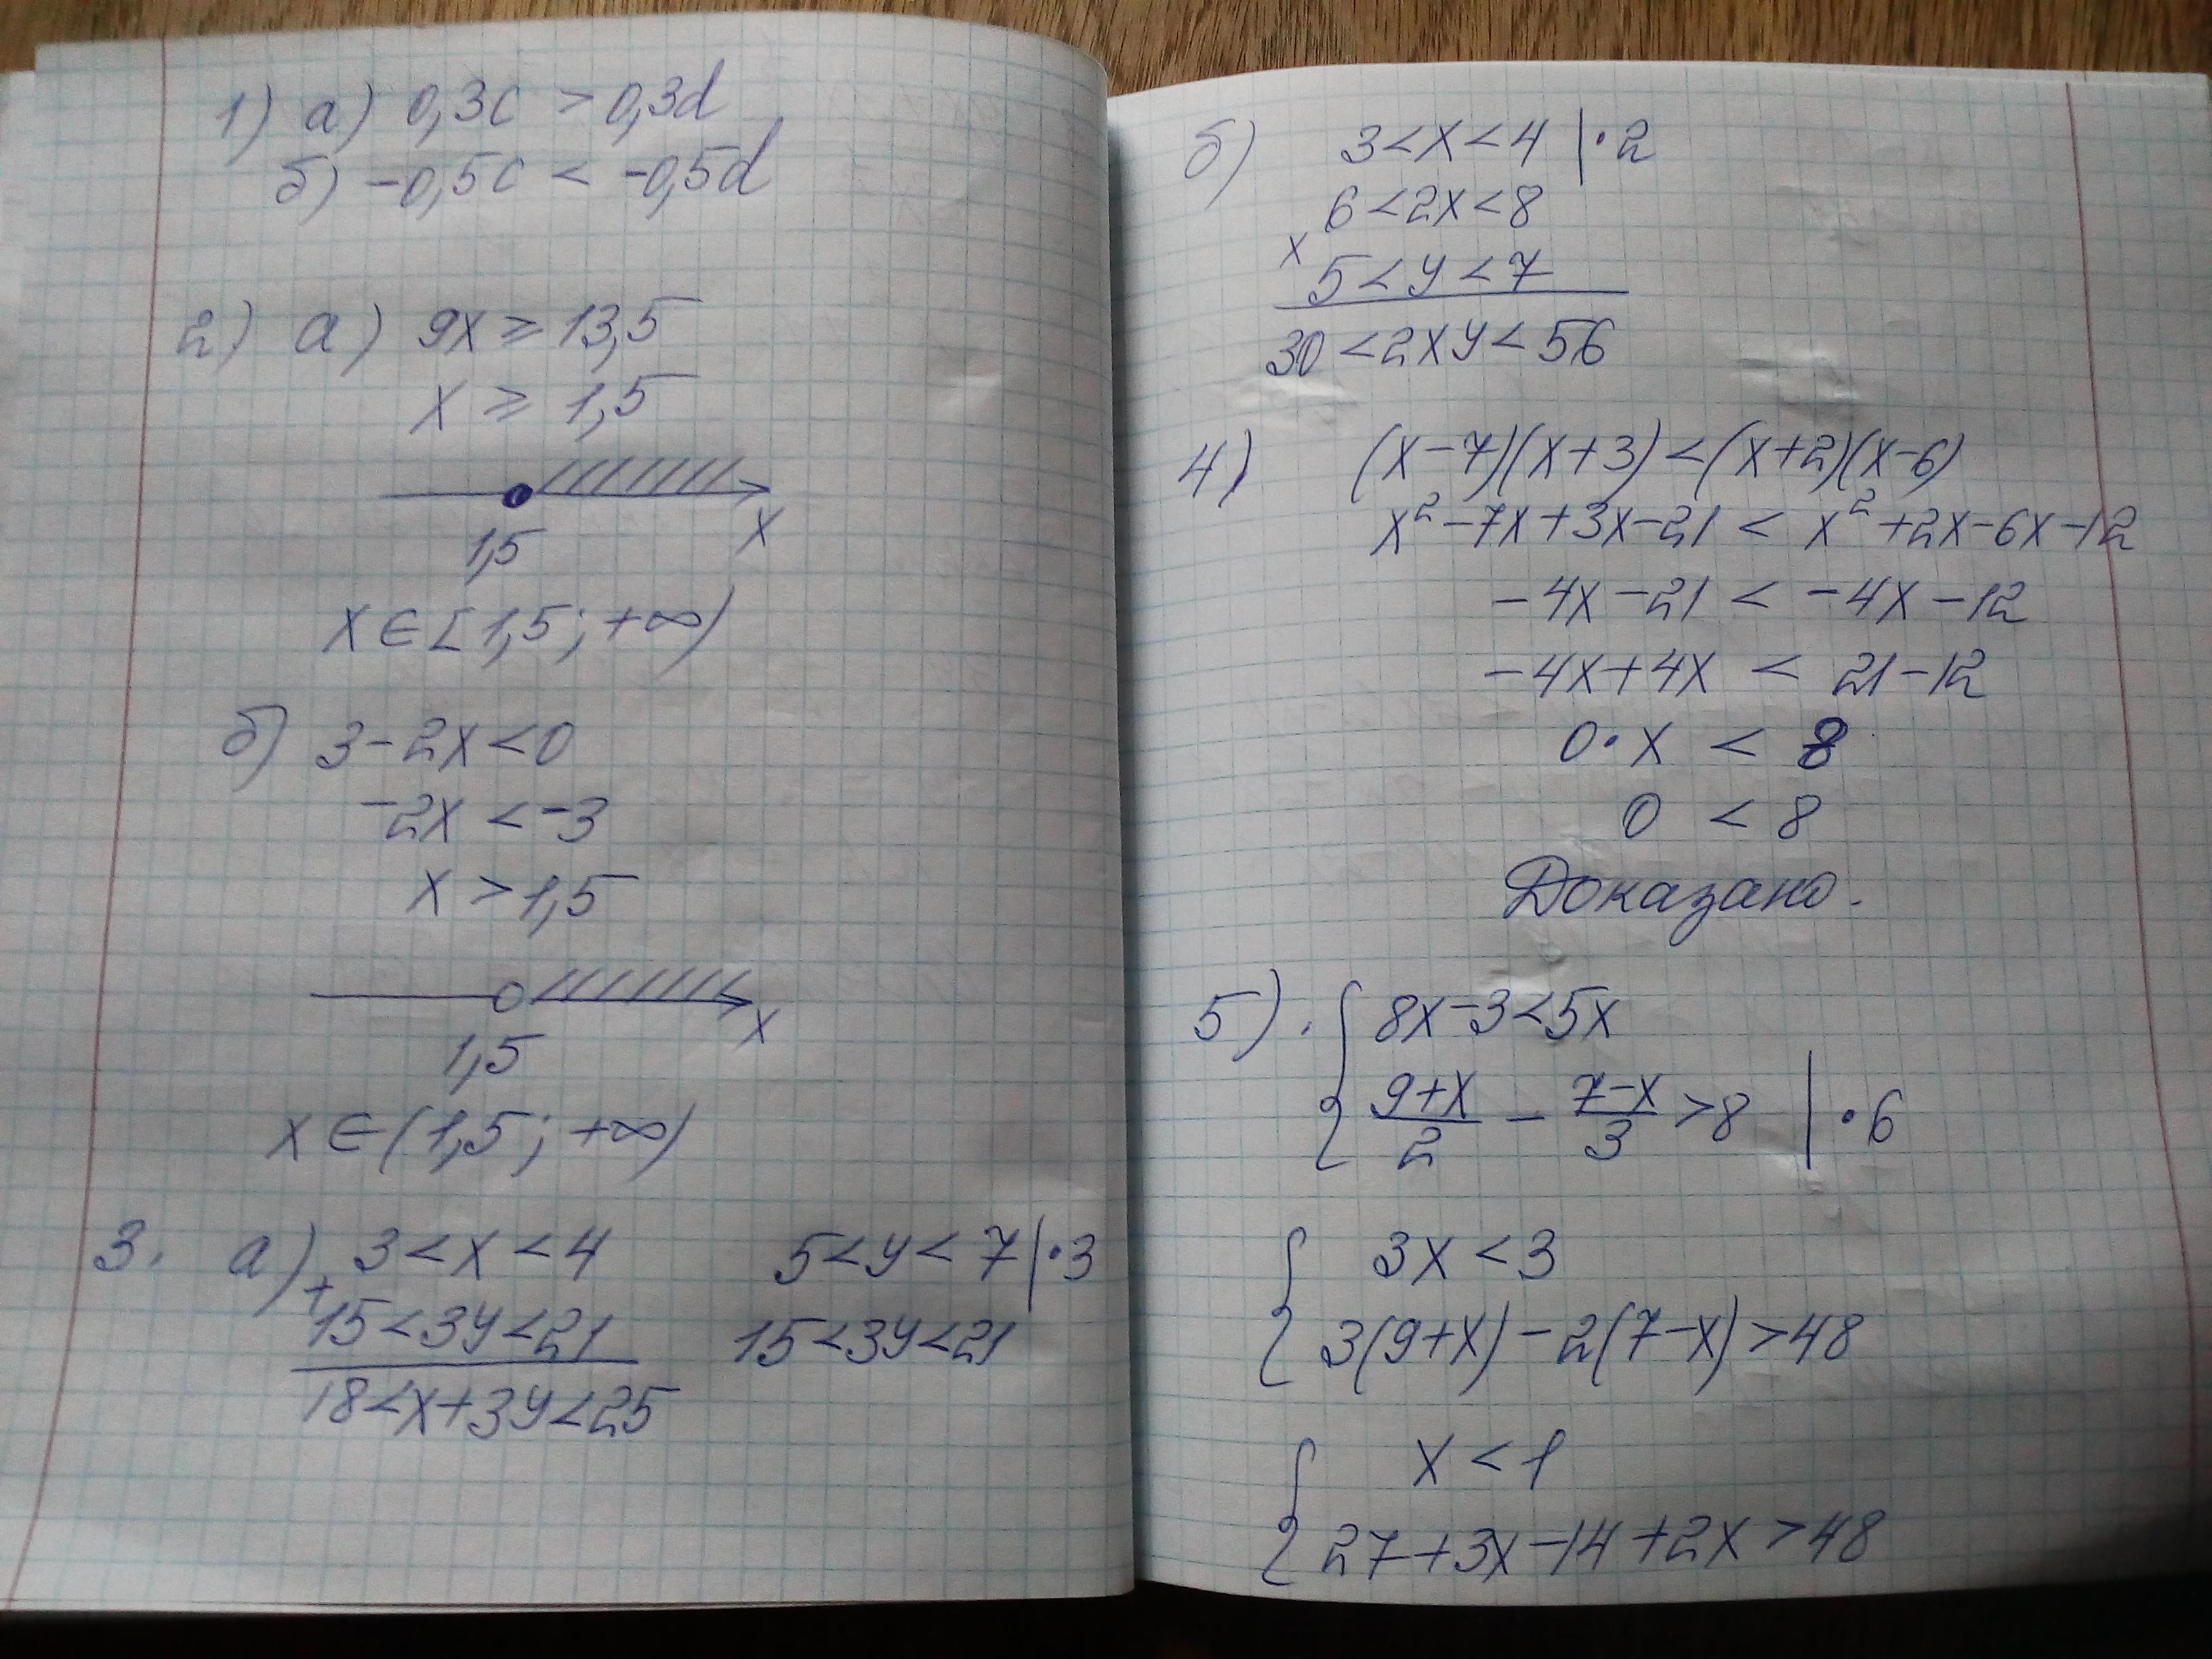 1) а) 0,3c > 0,3d
б) -0,5c < -0,5d
2) а) 9x ⩾ 13,5
x ⩾ 1,5
1,5 x
x ∈ [1,5; +∞)
б) 3-2x<0
-2x < -3
x > 1,5
x
1,5
x ∈ (1,5; +∞)
3. а) 3 < x < 4 5 < y < 7 | · 3
+ 15<3y<21 15<3y<21
18<x+3y<25
б) 3<x<4 | · 2
6<2x<8
x 5<y<7
30<2xy<56
4) (x-7)(x+3)<(x+2)(x-6)
x²-7x+3x-21 < x²+2x-6x-12
-4x-21 < -4x-12
-4x+4x < 21-12
0·x < 8
0 < 8
Доказано.
5). { 8x-3<5x
{ (9+x)/2 - (7-x)/3 >8 | · 6
{ 3x<3
{ 3(9+x)-2(7-x)>48
{ x<1
{ 27+3x-14+2x>48